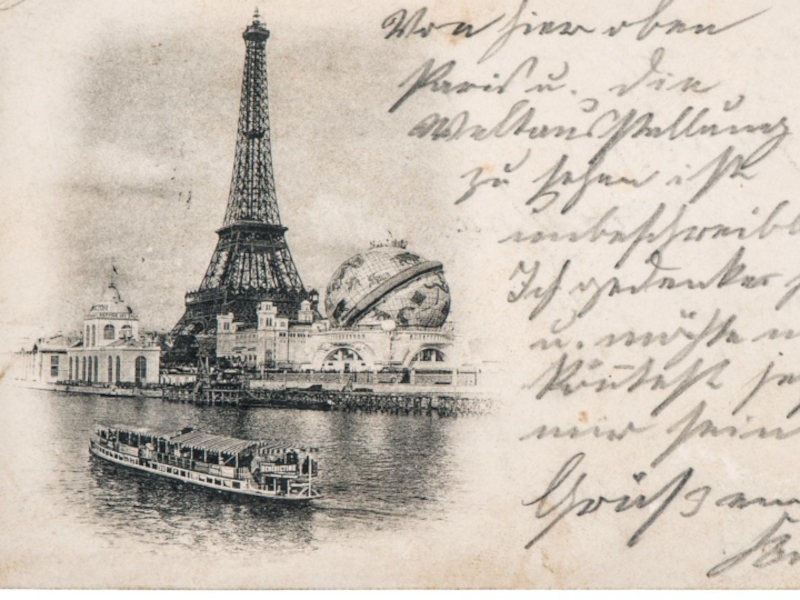 Von hier oben
Paris u. die
Weltausstellung
zu sehen ist
unbeschreibl
Ich gedenke
u. möchte
könntest
mir sein
Gruß